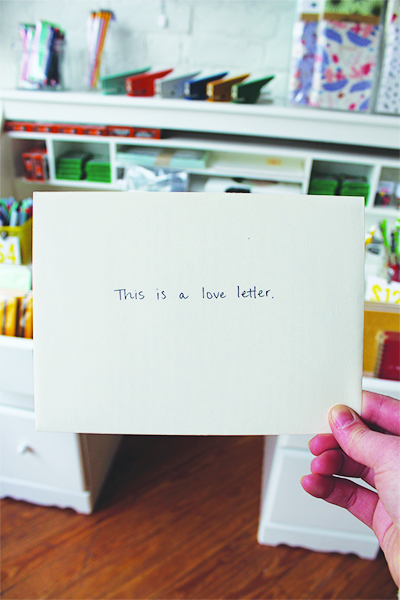 This is a love letter.